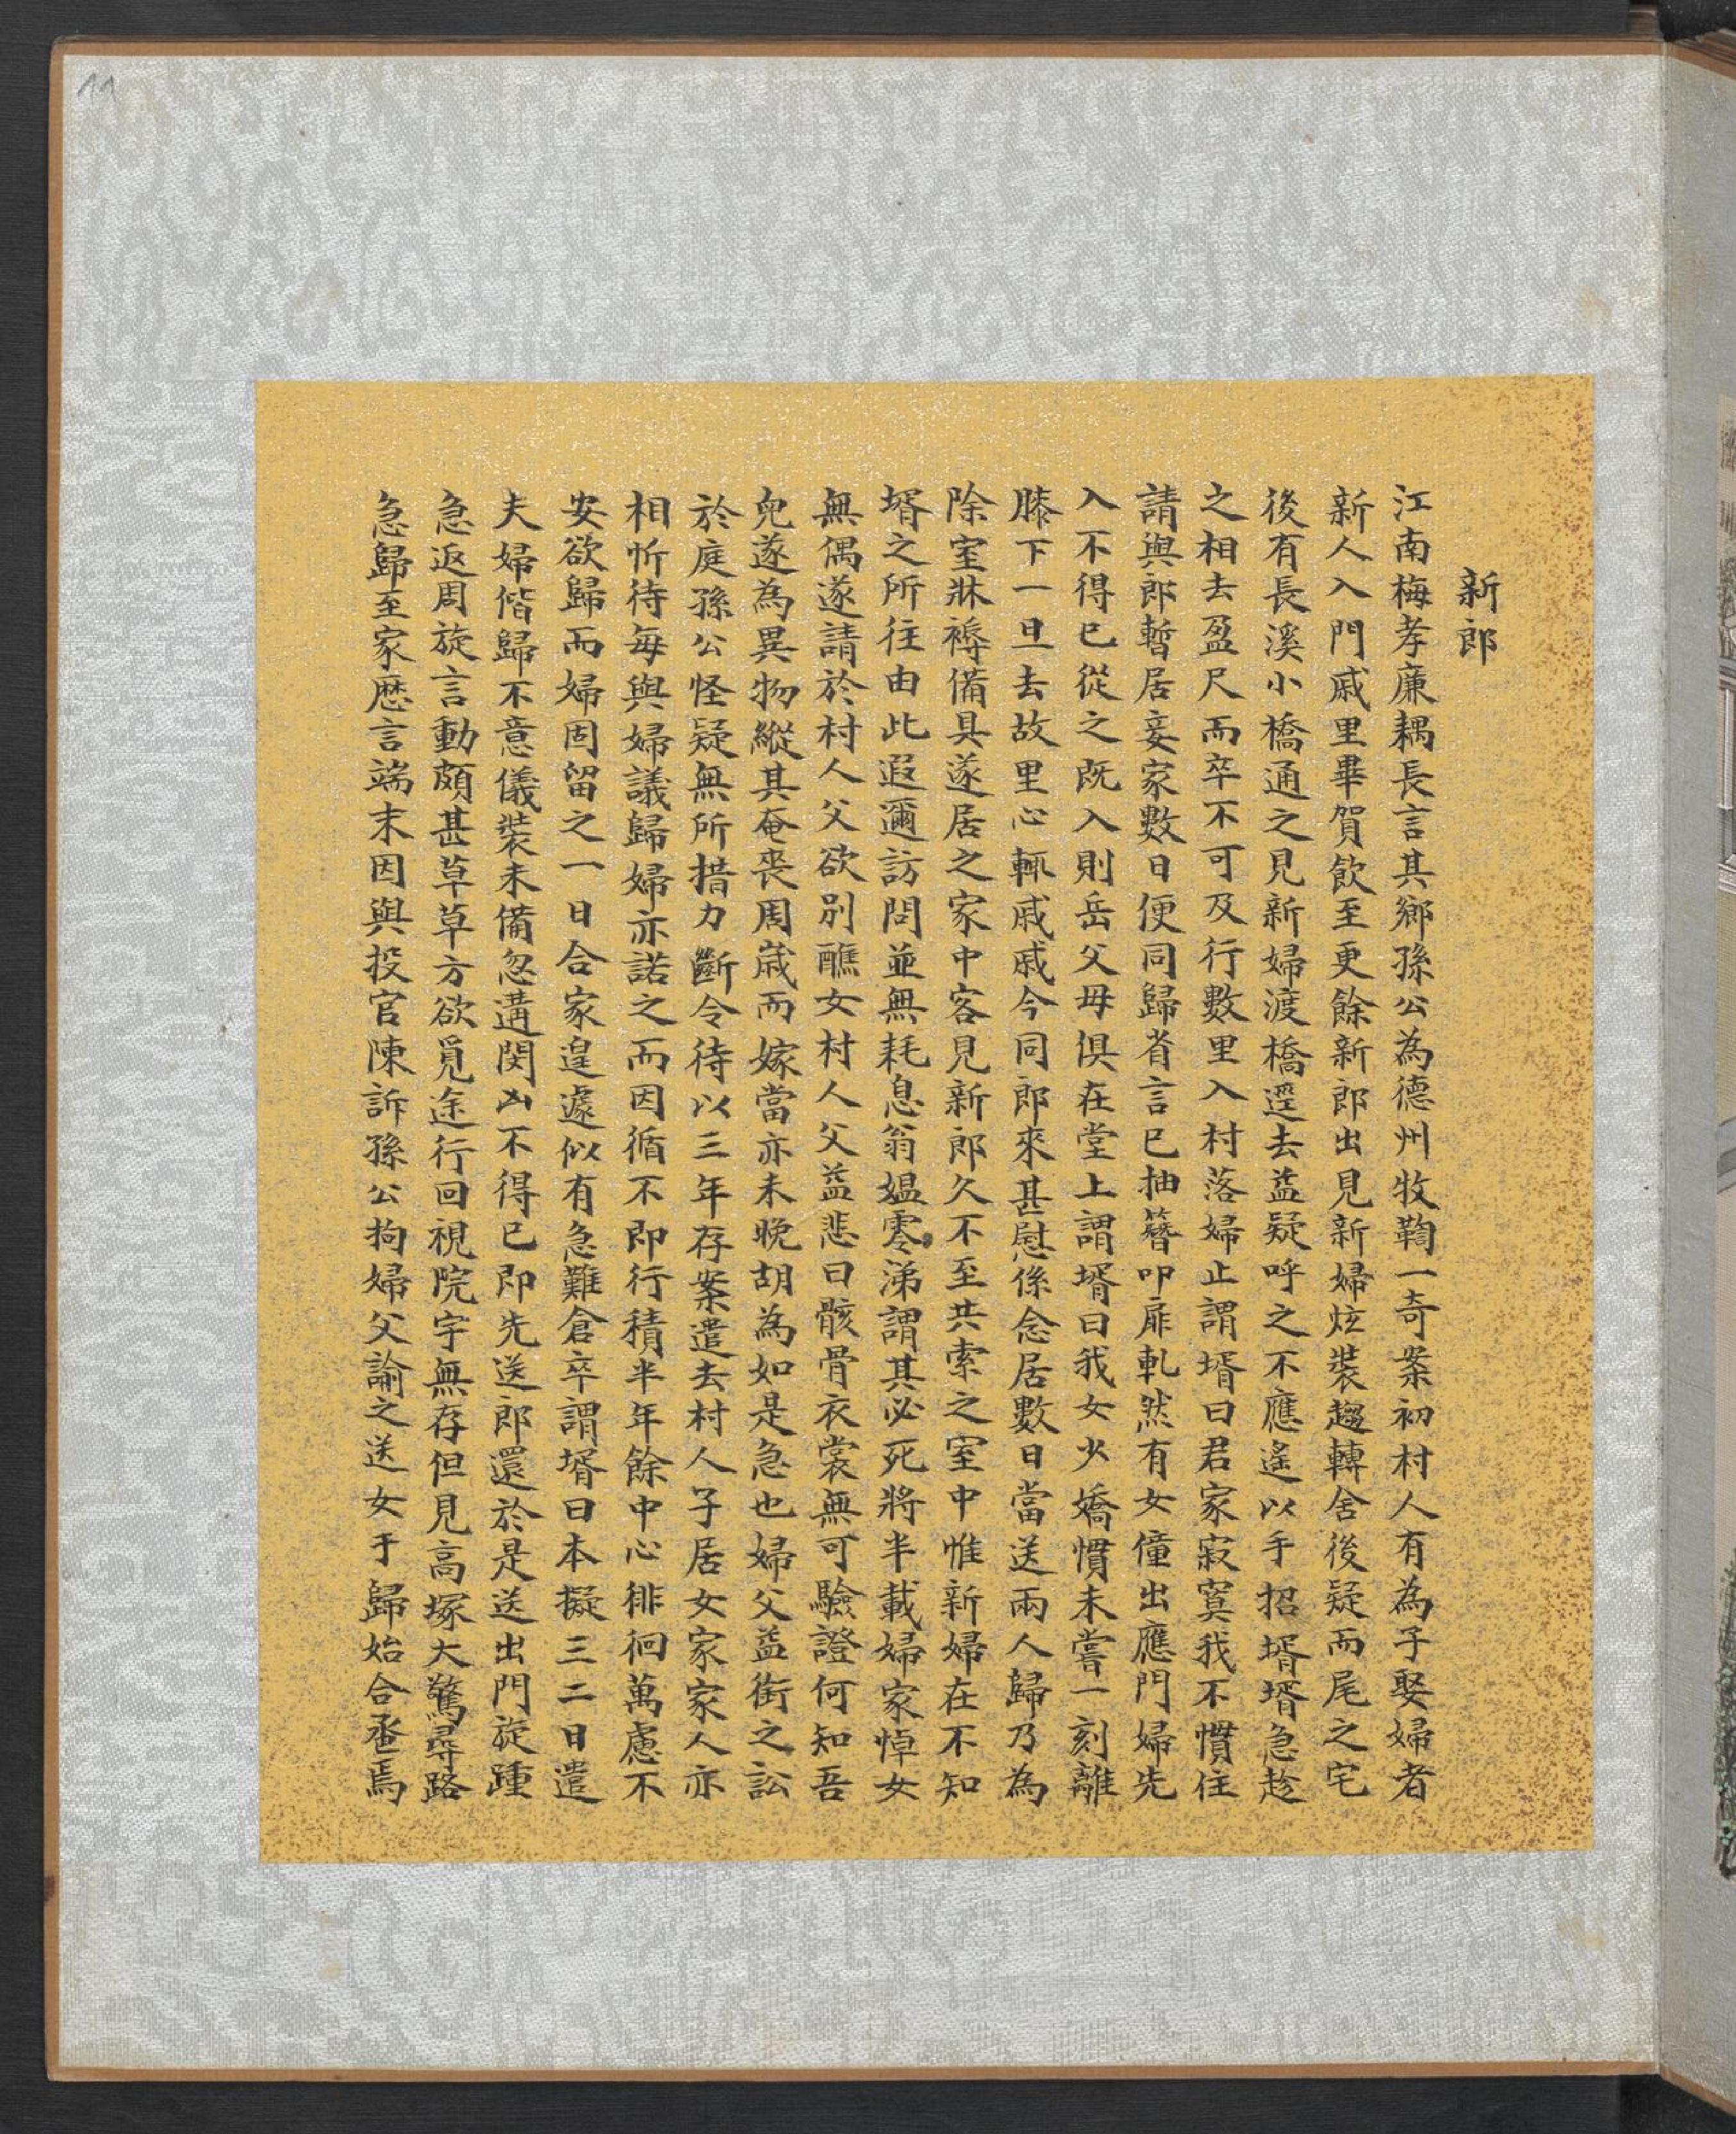 11
新郎
江南梅孝廉耦長言其鄉孫公為德州牧鞫一奇案初村人有為子娶婦者
新人入門戚里畢賀飲至更餘新郎出見新婦炫裝趨轉舍後疑而尾之宅
後有長溪小橋通之見新婦渡橋逕去益疑呼之不應遙以手招壻壻急趁
之相去盈尺而卒不可及行數里入村落婦止謂壻曰君家寂寞我不慣住
請與郎暫居妾家數日便同歸省言已抽簪叩扉軋然有女僮出應門婦先
入不得已從之既入則岳父母俱在堂上謂壻曰我女少嬌慣未嘗一刻離
膝下一旦去故里心輒戚戚今同郎來甚慰係念居數日當送兩人歸乃為
除室牀褥備具遂居之家中客見新郎久不至共索之室中惟新婦在不知
壻之所往由此遐邇訪問並無耗息翁媼零涕謂其必死將半載婦家悼女
無偶遂請於村人父欲別醮女村人父益悲曰骸骨衣裳無可驗證何知吾
兒遂為異物縱其奄喪周歲而嫁當亦未晚胡為如是急也婦父益銜之訟
於庭孫公怪疑無所措力斷令待以三年存案遣去村人子居女家家人亦
相忻待每與婦議歸婦亦諾之而因循不即行積半年餘中心徘徊萬慮不
安欲歸而婦固留之一日合家遑遽似有急難倉卒謂壻曰本擬三二日遣
夫婦偕歸不意儀裝未備忽遘閔凶不得已即先送郎還於是送出門旋踵
急返周旋言動頗甚草草方欲覓途行回視院宇無存但見高塚大驚尋路
急歸至家歷言端末因與投官陳訴孫公拘婦父諭之送女于歸始合巹焉